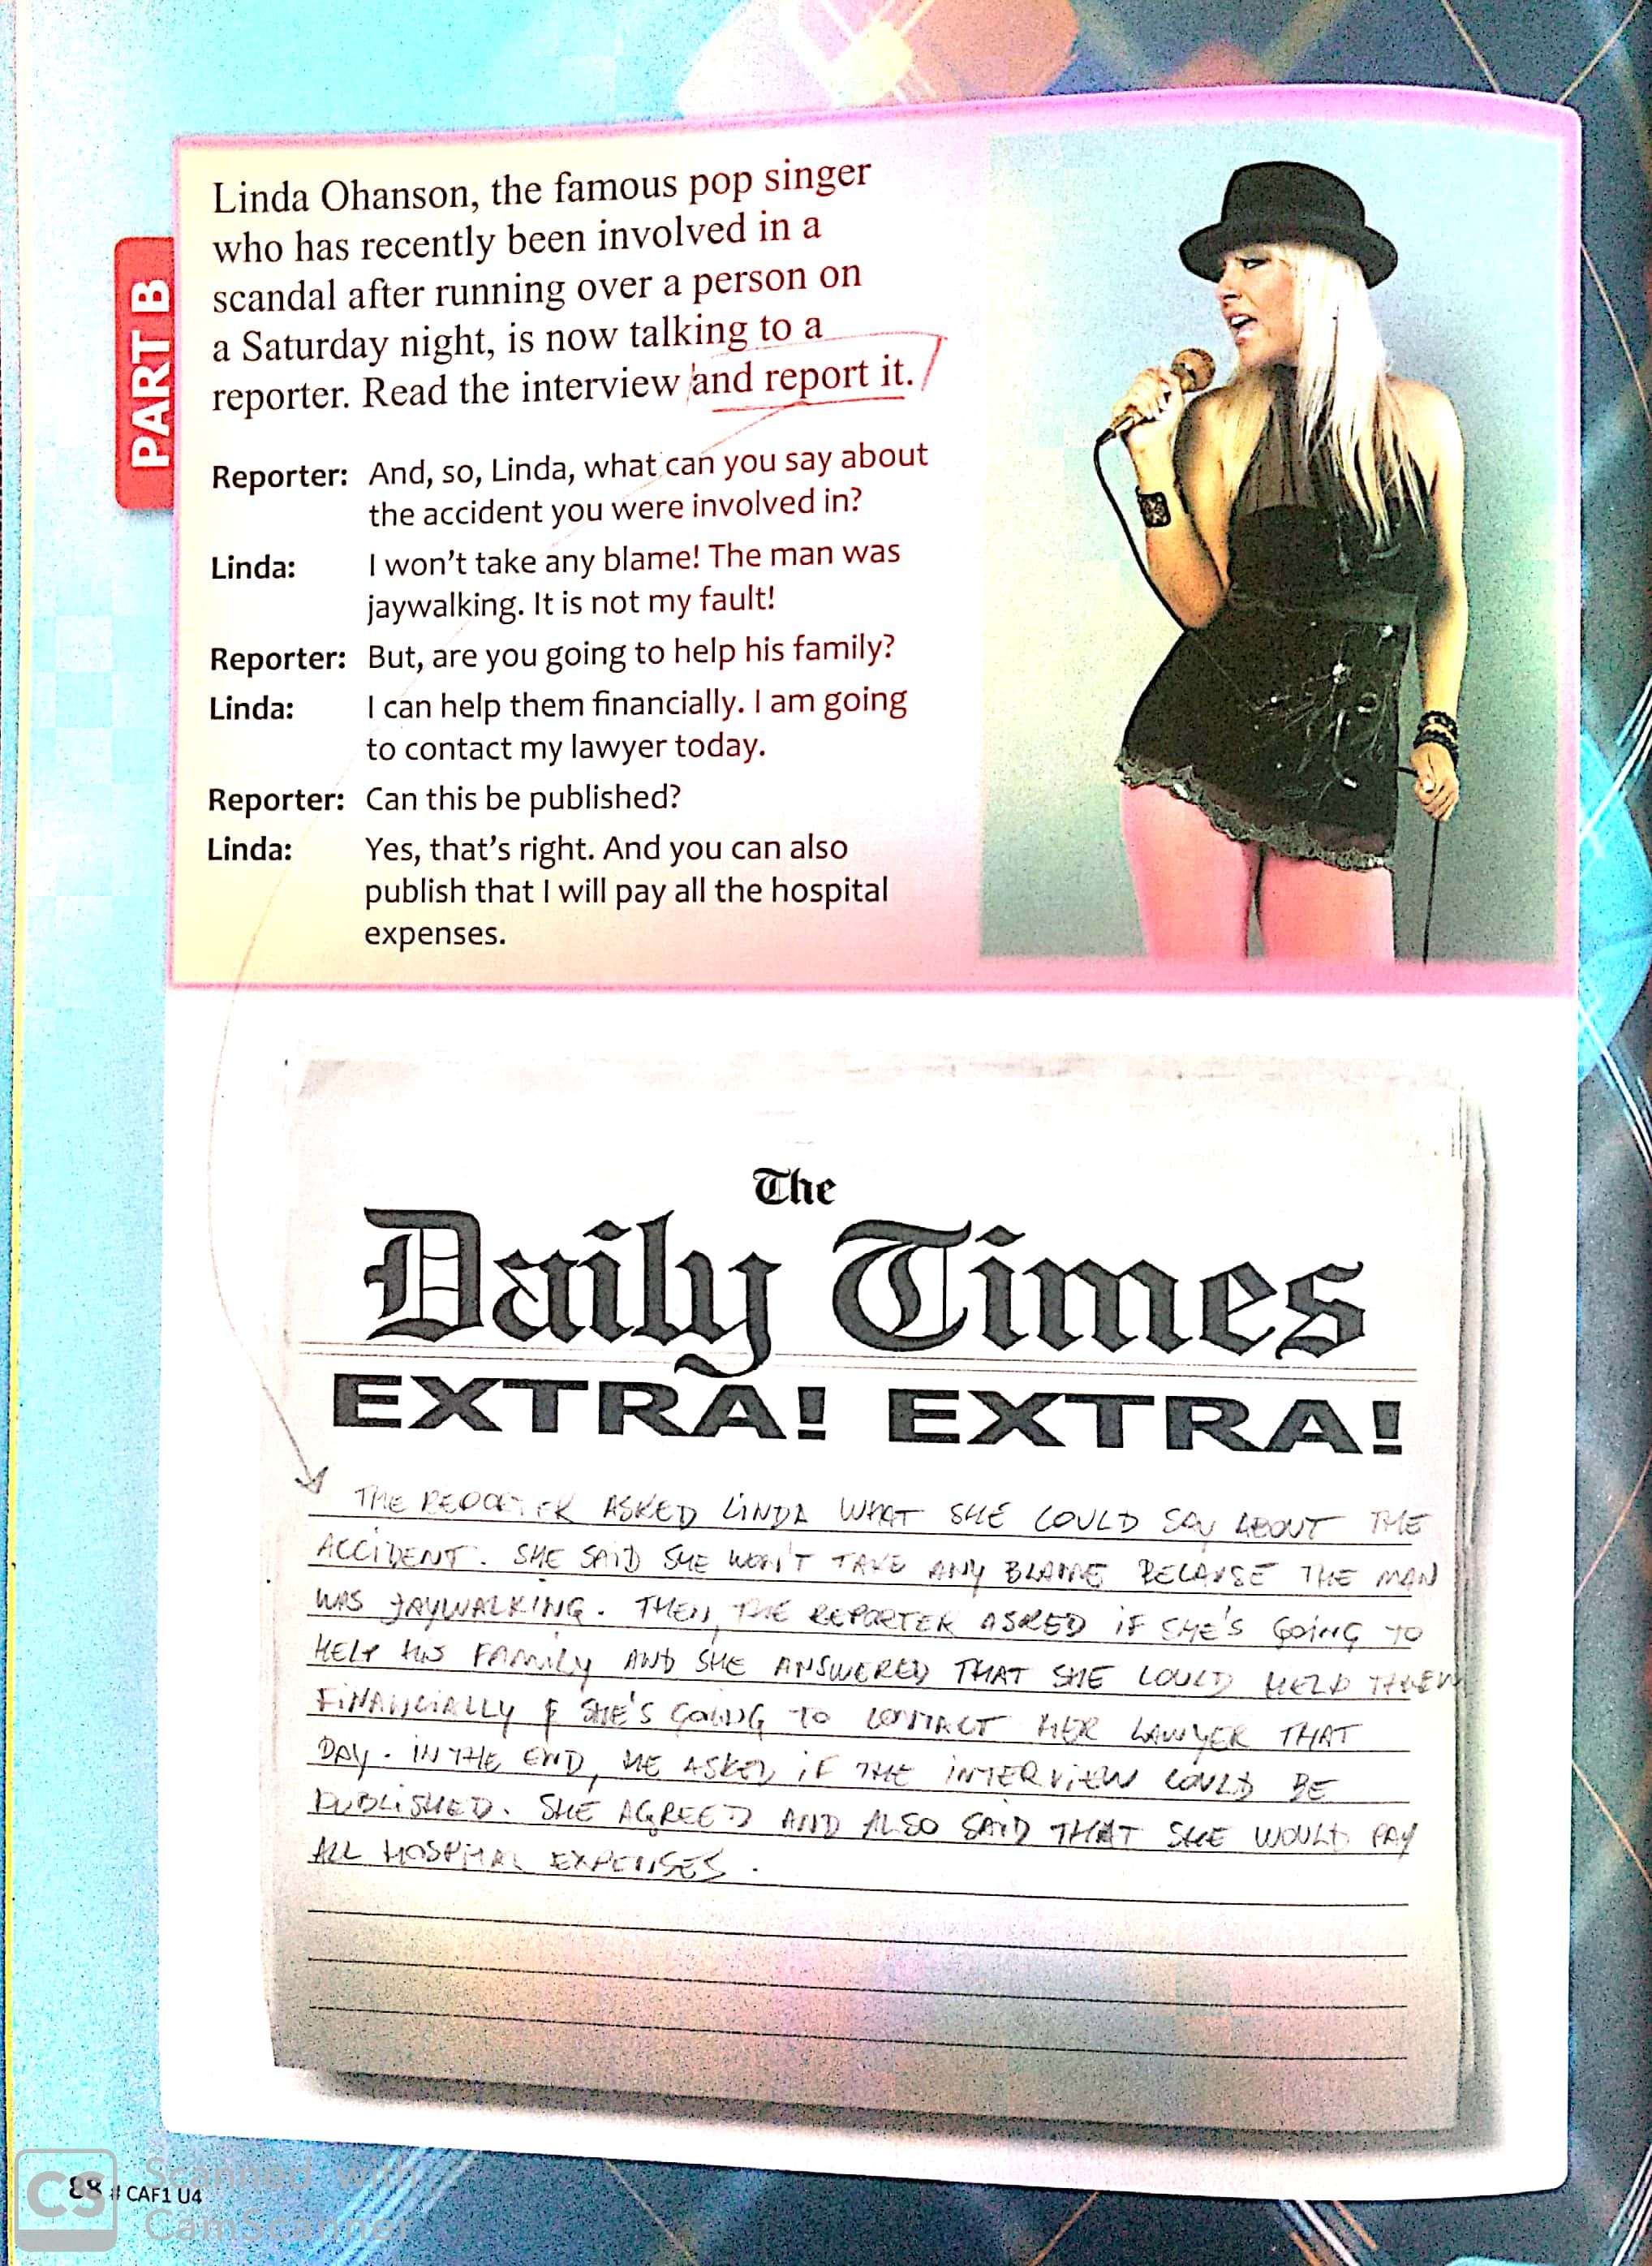 PART B
Linda Ohanson, the famous pop singer
who has recently been involved in a
scandal after running over a person on
a Saturday night, is now talking to a
reporter. Read the interview and report it.
Reporter: And, so, Linda, what can you say about
the accident you were involved in?
Linda: I won't take any blame! The man was
jaywalking. It is not my fault!
Reporter: But, are you going to help his family?
Linda: I can help them financially. I am going
to contact my lawyer today.
Reporter: Can this be published?
Linda: Yes, that's right. And you can also
publish that I will pay all the hospital
expenses.
The
Daily Times
EXTRA! EXTRA!
THE REPORTER ASKED LINDA WHAT SHE COULD SAY ABOUT THE
ACCIDENT. SHE SAID SHE WON'T TAKE ANY BLAME BECAUSE THE MAN
WAS JAYWALKING. THEN, THE REPORTER ASKED IF SHE'S GOING TO
HELP HIS FAMILY AND SHE ANSWERED THAT SHE COULD HELP THEM
FINANCIALLY & SHE'S GOING TO CONTACT HER LAWYER THAT
DAY. IN THE END, HE ASKED IF THE INTERVIEW COULD BE
PUBLISHED. SHE AGREED AND ALSO SAID THAT SHE WOULD PAY
ALL HOSPITAL EXPENSES.
88 # CAF1 U4
CS Scanned with
CamScanner